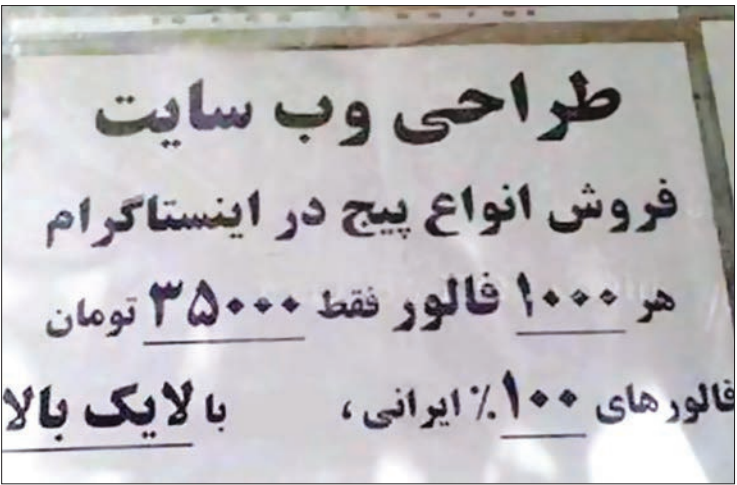 طراحی وب سایت
فروش انواع پیج در اینستاگرام
هر ۱۰۰۰ فالور فقط ۳۵۰۰۰ تومان
فالورهای ۱۰۰٪ ایرانی ، با لایک بالا